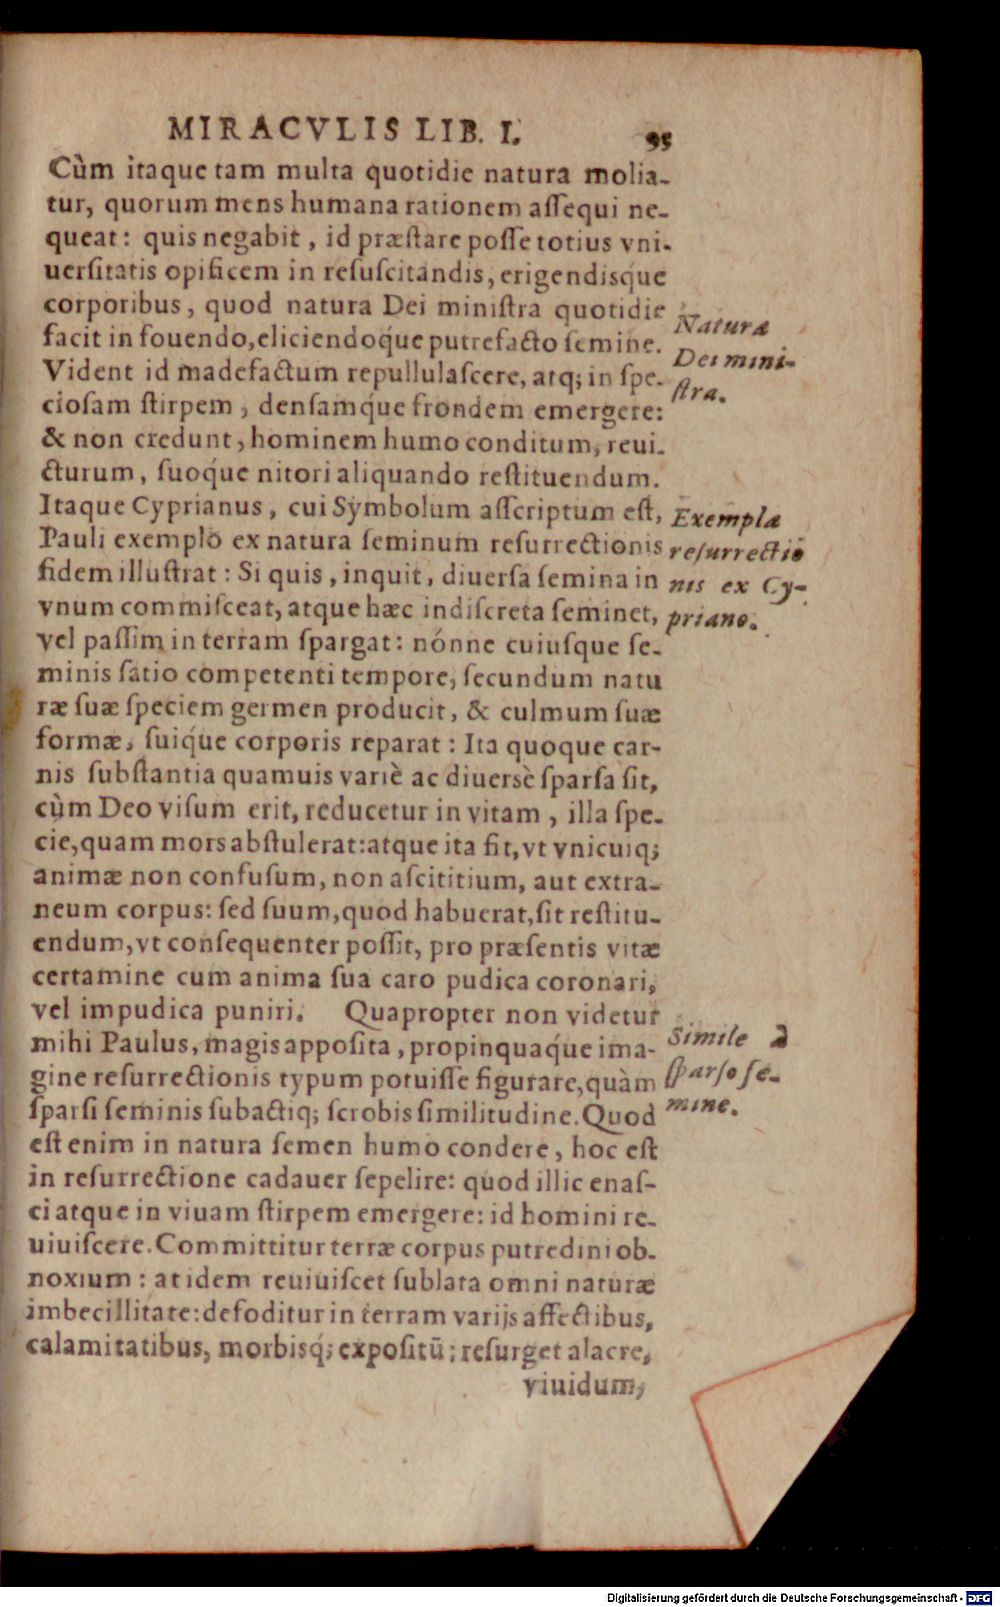 MIRACVLIS LIB. I. 95
Cùm itaque tam multa quotidie natura molia-
tur, quorum mens humana rationem aſſequi ne-
queat: quis negabit, id præſtare poſſe totius vni-
uerſitatis opificem in reſuſcitandis, erigendisq́ue
corporibus, quod natura Dei miniſtra quotidie
facit in fouendo, eliciendoq́ue putrefacto ſemine.
Vident id madefactum repullulaſcere, atq; in ſpe-
cioſam ſtirpem, denſamq́ue frondem emergere:
& non credunt, hominem humo conditum, reui-
cturum, ſuoq́ue nitori aliquando reſtituendum.
Itaque Cyprianus, cui Symbolum aſſcriptum eſt,
Pauli exemplo ex natura ſeminum reſurrectionis
fidem illuſtrat: Si quis, inquit, diuerſa ſemina in
vnum commiſceat, atque hæc indiſcreta ſeminet,
vel paſſim in terram ſpargat: nónne cuiuſque ſe-
minis ſatio competenti tempore, ſecundum natu
ræ ſuæ ſpeciem germen producit, & culmum ſuæ
formæ, ſuiq́ue corporis reparat: Ita quoque car-
nis ſubſtantia quamuis variè ac diuersè ſparſa ſit,
cùm Deo viſum erit, reducetur in vitam, illa ſpe-
cie, quam mors abſtulerat: atque ita fit, vt vnicuiq;
animæ non confuſum, non aſcititium, aut extra-
neum corpus: ſed ſuum, quod habuerat, ſit reſtitu-
endum, vt conſequenter poſſit, pro præſentis vitæ
certamine cum anima ſua caro pudica coronari,
vel impudica puniri. Quapropter non videtur
mihi Paulus, magis appoſita, propinquaq́ue ima-
gine reſurrectionis typum potuiſſe figurare, quàm
ſparſi ſeminis ſubactiq; ſcrobis ſimilitudine. Quod
eſt enim in natura ſemen humo condere, hoc eſt
in reſurrectione cadauer ſepelire: quod illic enaſ-
ci atque in viuam ſtirpem emergere: id homini re-
uiuiſcere. Committitur terræ corpus putredini ob-
noxium: at idem reuiuiſcet ſublata omni naturæ
imbecillitate: defoditur in terram varijs affectibus,
calamitatibus, morbisq́; expoſitū: reſurget alacre,
viuidum,
Natura
Dei mini-
ſtra.
Exempla
reſurrectio
nis ex Cy-
priano.
Simile à
ſparſo ſe-
mine.
Digitalisierung gefördert durch die Deutsche Forschungsgemeinschaft - DFG